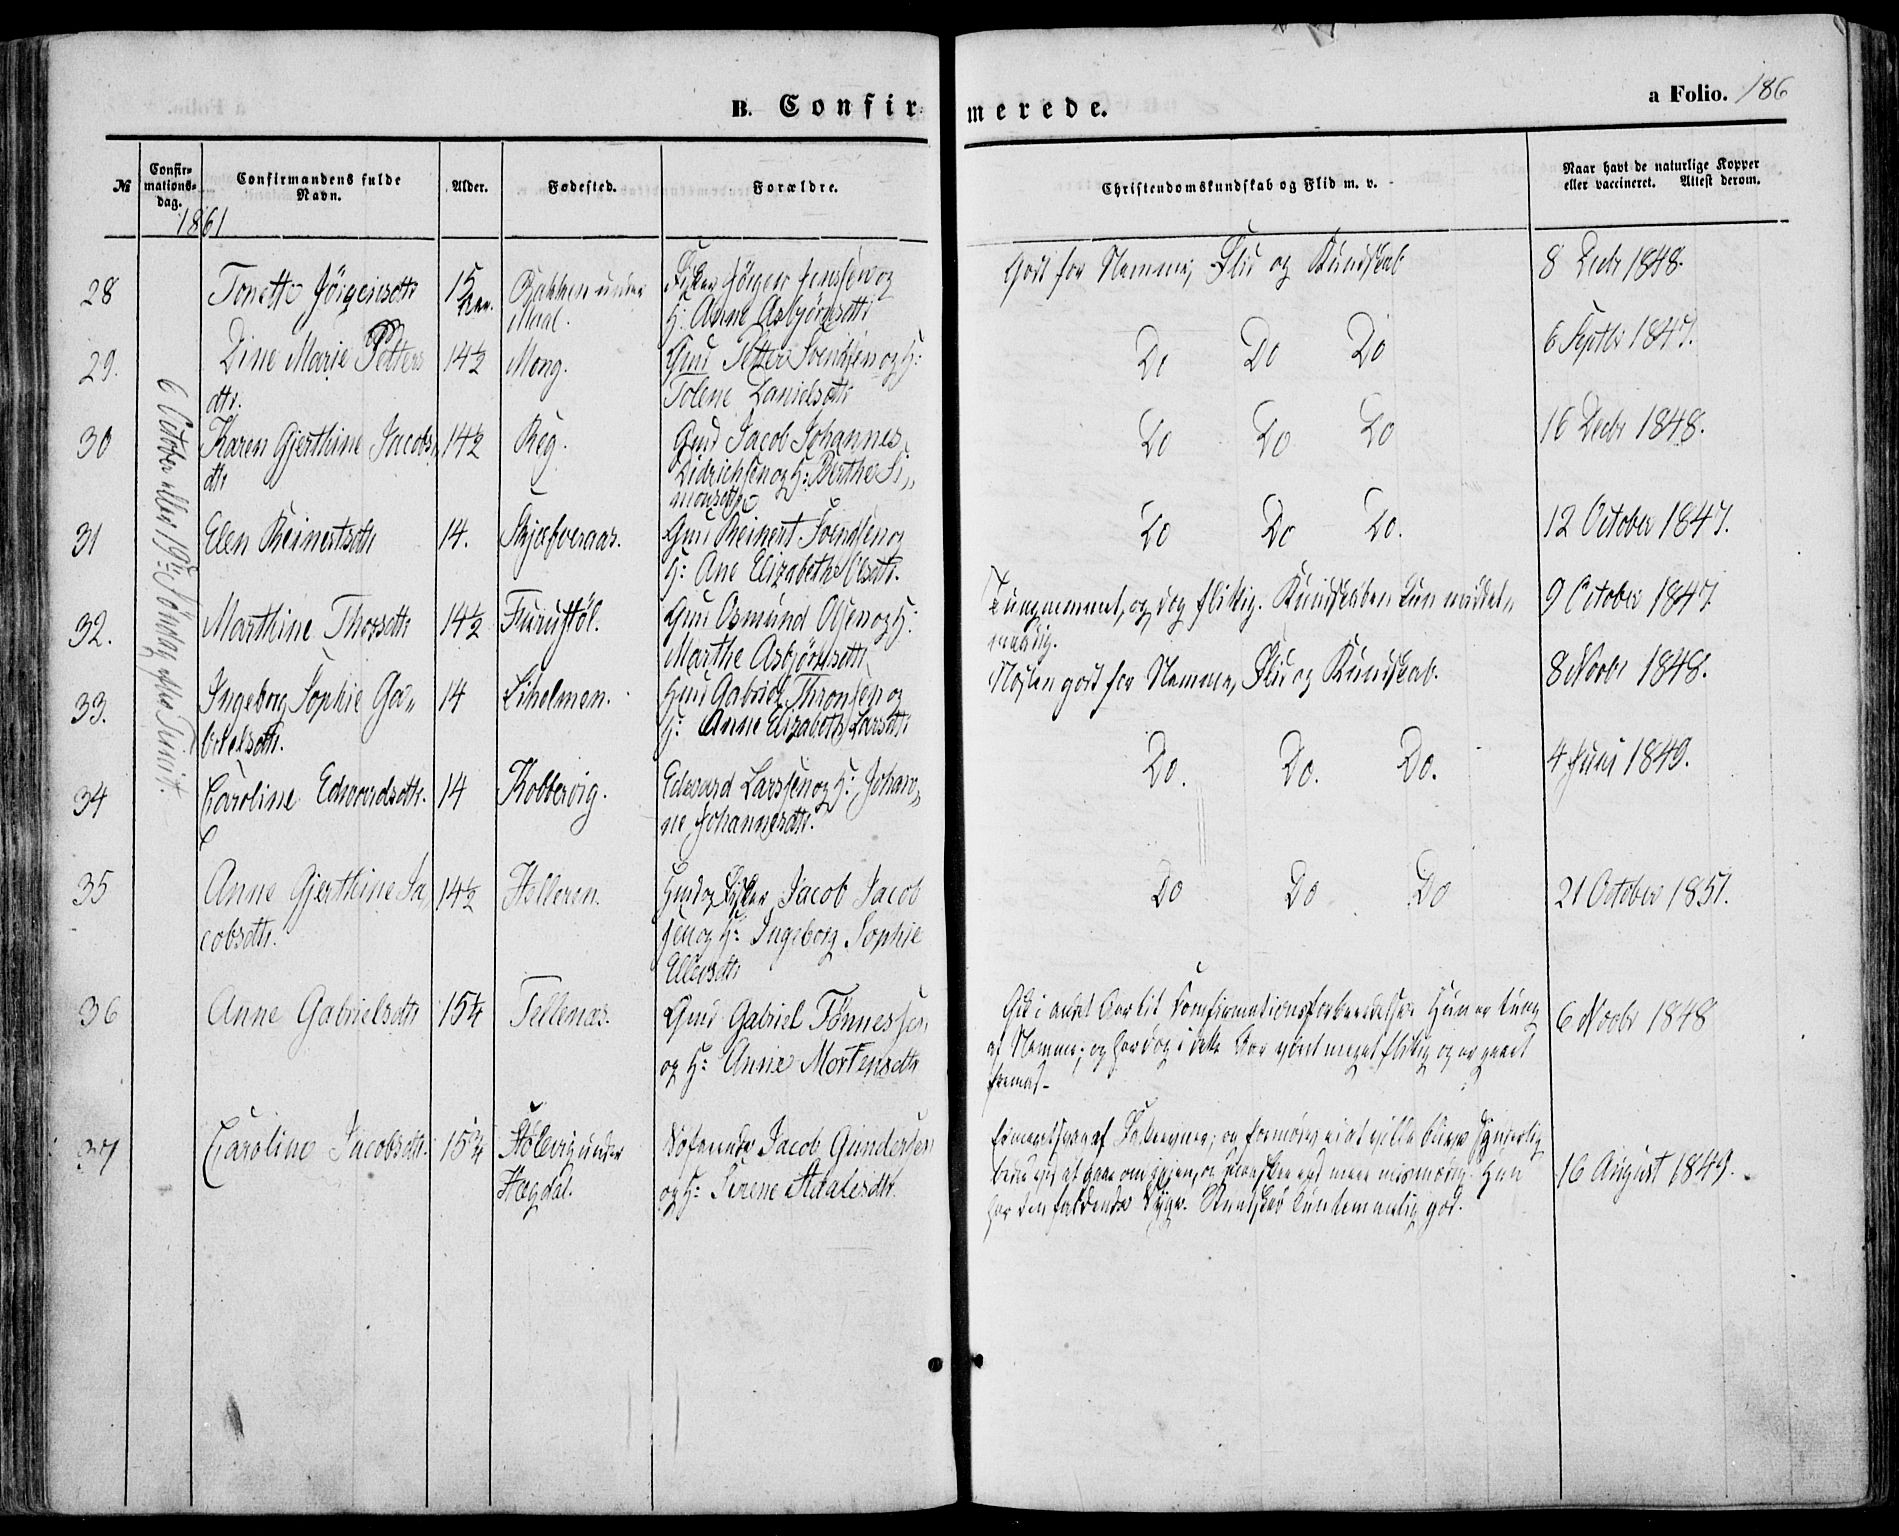 B. Confirmerede.
a Folio. 186
№
Confirmationsdag.
Confirmandens fulde Navn.
Alder.
Fødested.
Forældre.
Christendomskundskab og Flid m. v.
Naar havt de naturlige Kopper eller vaccineret. Attest derom.
1861
6 October eller 19de Søndag efter Trinit.
28
Tonette Jörgensdtr
15
Bakken under
Maal.
Fisker Jörgen Jenssen og
H: Anne Asbjörnsdtr
Godt for Nemme, Flid og Kundskab
8 Decbr 1848.
29.
Dine Marie Petters
dtr.
14½
Mong.
Gmd Petter Svendsen og H:
Tolene Danielsdtr
Do Do Do
6 Septbr 1847.
30
Karen Gjerthine Jacobs
dtr
14½
Reg.
Gmd Jacob Johannes
Didrichsen og H: Berthe Si„
monsdtr
Do Do Do
16 Decbr 1848.
31
Elen Reinertsdtr
14.
Skjæbveraas.
Gmd Reinert Svendsen og
H: Ane Elizabeth Olsdtr.
Do Do Do.
12 October 1847.
32.
Marthine Thorsdtr
14½
Furustöl.
Gmd Osmund Olsen og H:
Marthe Asbjörnsdtr
Tungnemmet, og dog flittig. Kundskaben kun maadel„
maadig.
9 October 1847
33.
Ingeborg Sophie Ga„
brielsdtr.
14
Liholmen.
Huusmd Gabriel Thronsen og
H: Anne Elizabeth Larsdtr
Nogen godt for Nemme, Flid og Kundskab.
8 Novbr 1848.
34
Caroline Edvardsdtr.
14
Kobbervig.
Edvard Larssen og H: Johan„
ne Johannesdtr.
Do. Do. Do.
4 Juni 1849.
35
Anne Gjerthine Ja
cobsdtr.
14½
Helleren.
Gmd og Fisker Jacob Jacob
sen og H: Ingeborg Sophie
Ellersdtr
Do Do Do
21 October 1851.
36
Anne Gabrielsdtr
15¼
Tellenæs.
Gmd Gabriel Tönnessen
og H: Anne Mortensdtr
Gik i andet Aar til Confirmationsforberedelse. Hun er tung
af Nemme; og har dog i dette Aar været meget flittig og er gaaet
fremad.
6 Novbr 1848
37
Caroline Jacobsdtr.
15¾
Stölevig under
Hegdal.
Söfarende Jacob Gundersen
og H: Serene Aadelsdtr.
har den faldende Syge. Kundskab temmelig god.
16 August 1849.